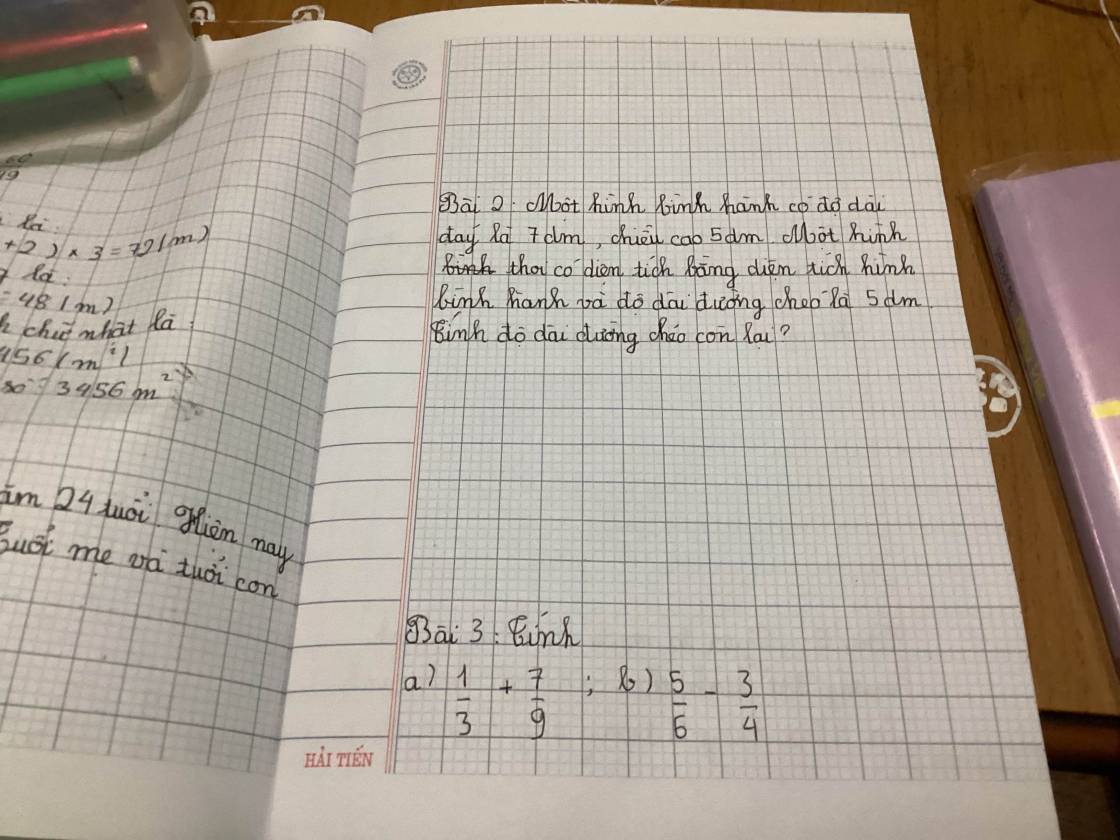 60
19
là:
+2) × 3 = 72 (m)
là:
= 48 (m)
chữ nhật là:
456 (m²)
số: 3456 m²
năm 24 tuổi. Hiện nay
tuổi mẹ và tuổi con
Bài 2: Một hình bình hành có độ dài
đáy là 7dm, chiều cao 5dm. Một hình
bình thoi có diện tích bằng diện tích hình
bình hành và độ dài đường chéo là 5dm.
Tính độ dài đường chéo còn lại?
Bài 3: Tính
a) 1/3 + 7/9 ; b) 5/6 - 3/4
HẢI TIẾN